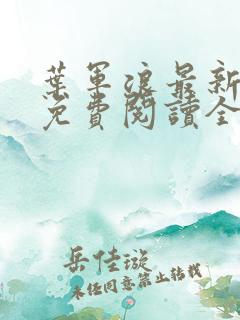 葉軍浪最新
免費閱讀全
岳佳璇
未經同意禁止轉載